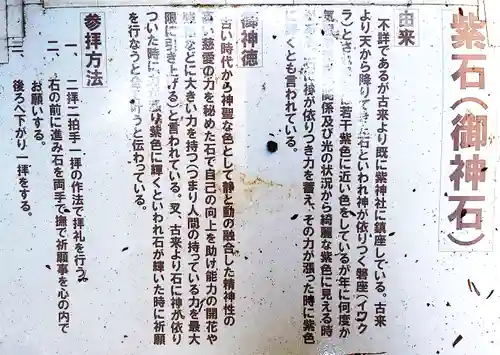 紫石(御神石)
由来
不詳であるが古来より既に紫神社に鎮座している。古来
より天から降りてきた石といわれ神が依りつく磐座(イワク
ラ)とさ に若干紫色に近い色をしているが年に何度か
気 関係及び光の状況から綺麗な紫色に見える時
石に神が依りつき力を蓄え、その力が漲った時に紫色
に輝くとも言われている。
御神徳
古い時代から神聖な色として静と動の融合した精神性の
高い慈愛の力を秘めた石で自己の向上を助け能力の開花や
などに大きい力を持つ(つまり人間の持っている力を最大
限に引き上げる)と言われている。又、古来より石に神が依り
ついた時に 紫色に輝くといわれ石が輝いた時に祈願
を行なうと 叶うと伝わっている。
参拝方法
一、二拝二拍手一拝の作法で拝礼を行う。
二、石の前に進み石を両手で撫で祈願事を心の内で
お願いする。
後ろへ下がり一拝をする。